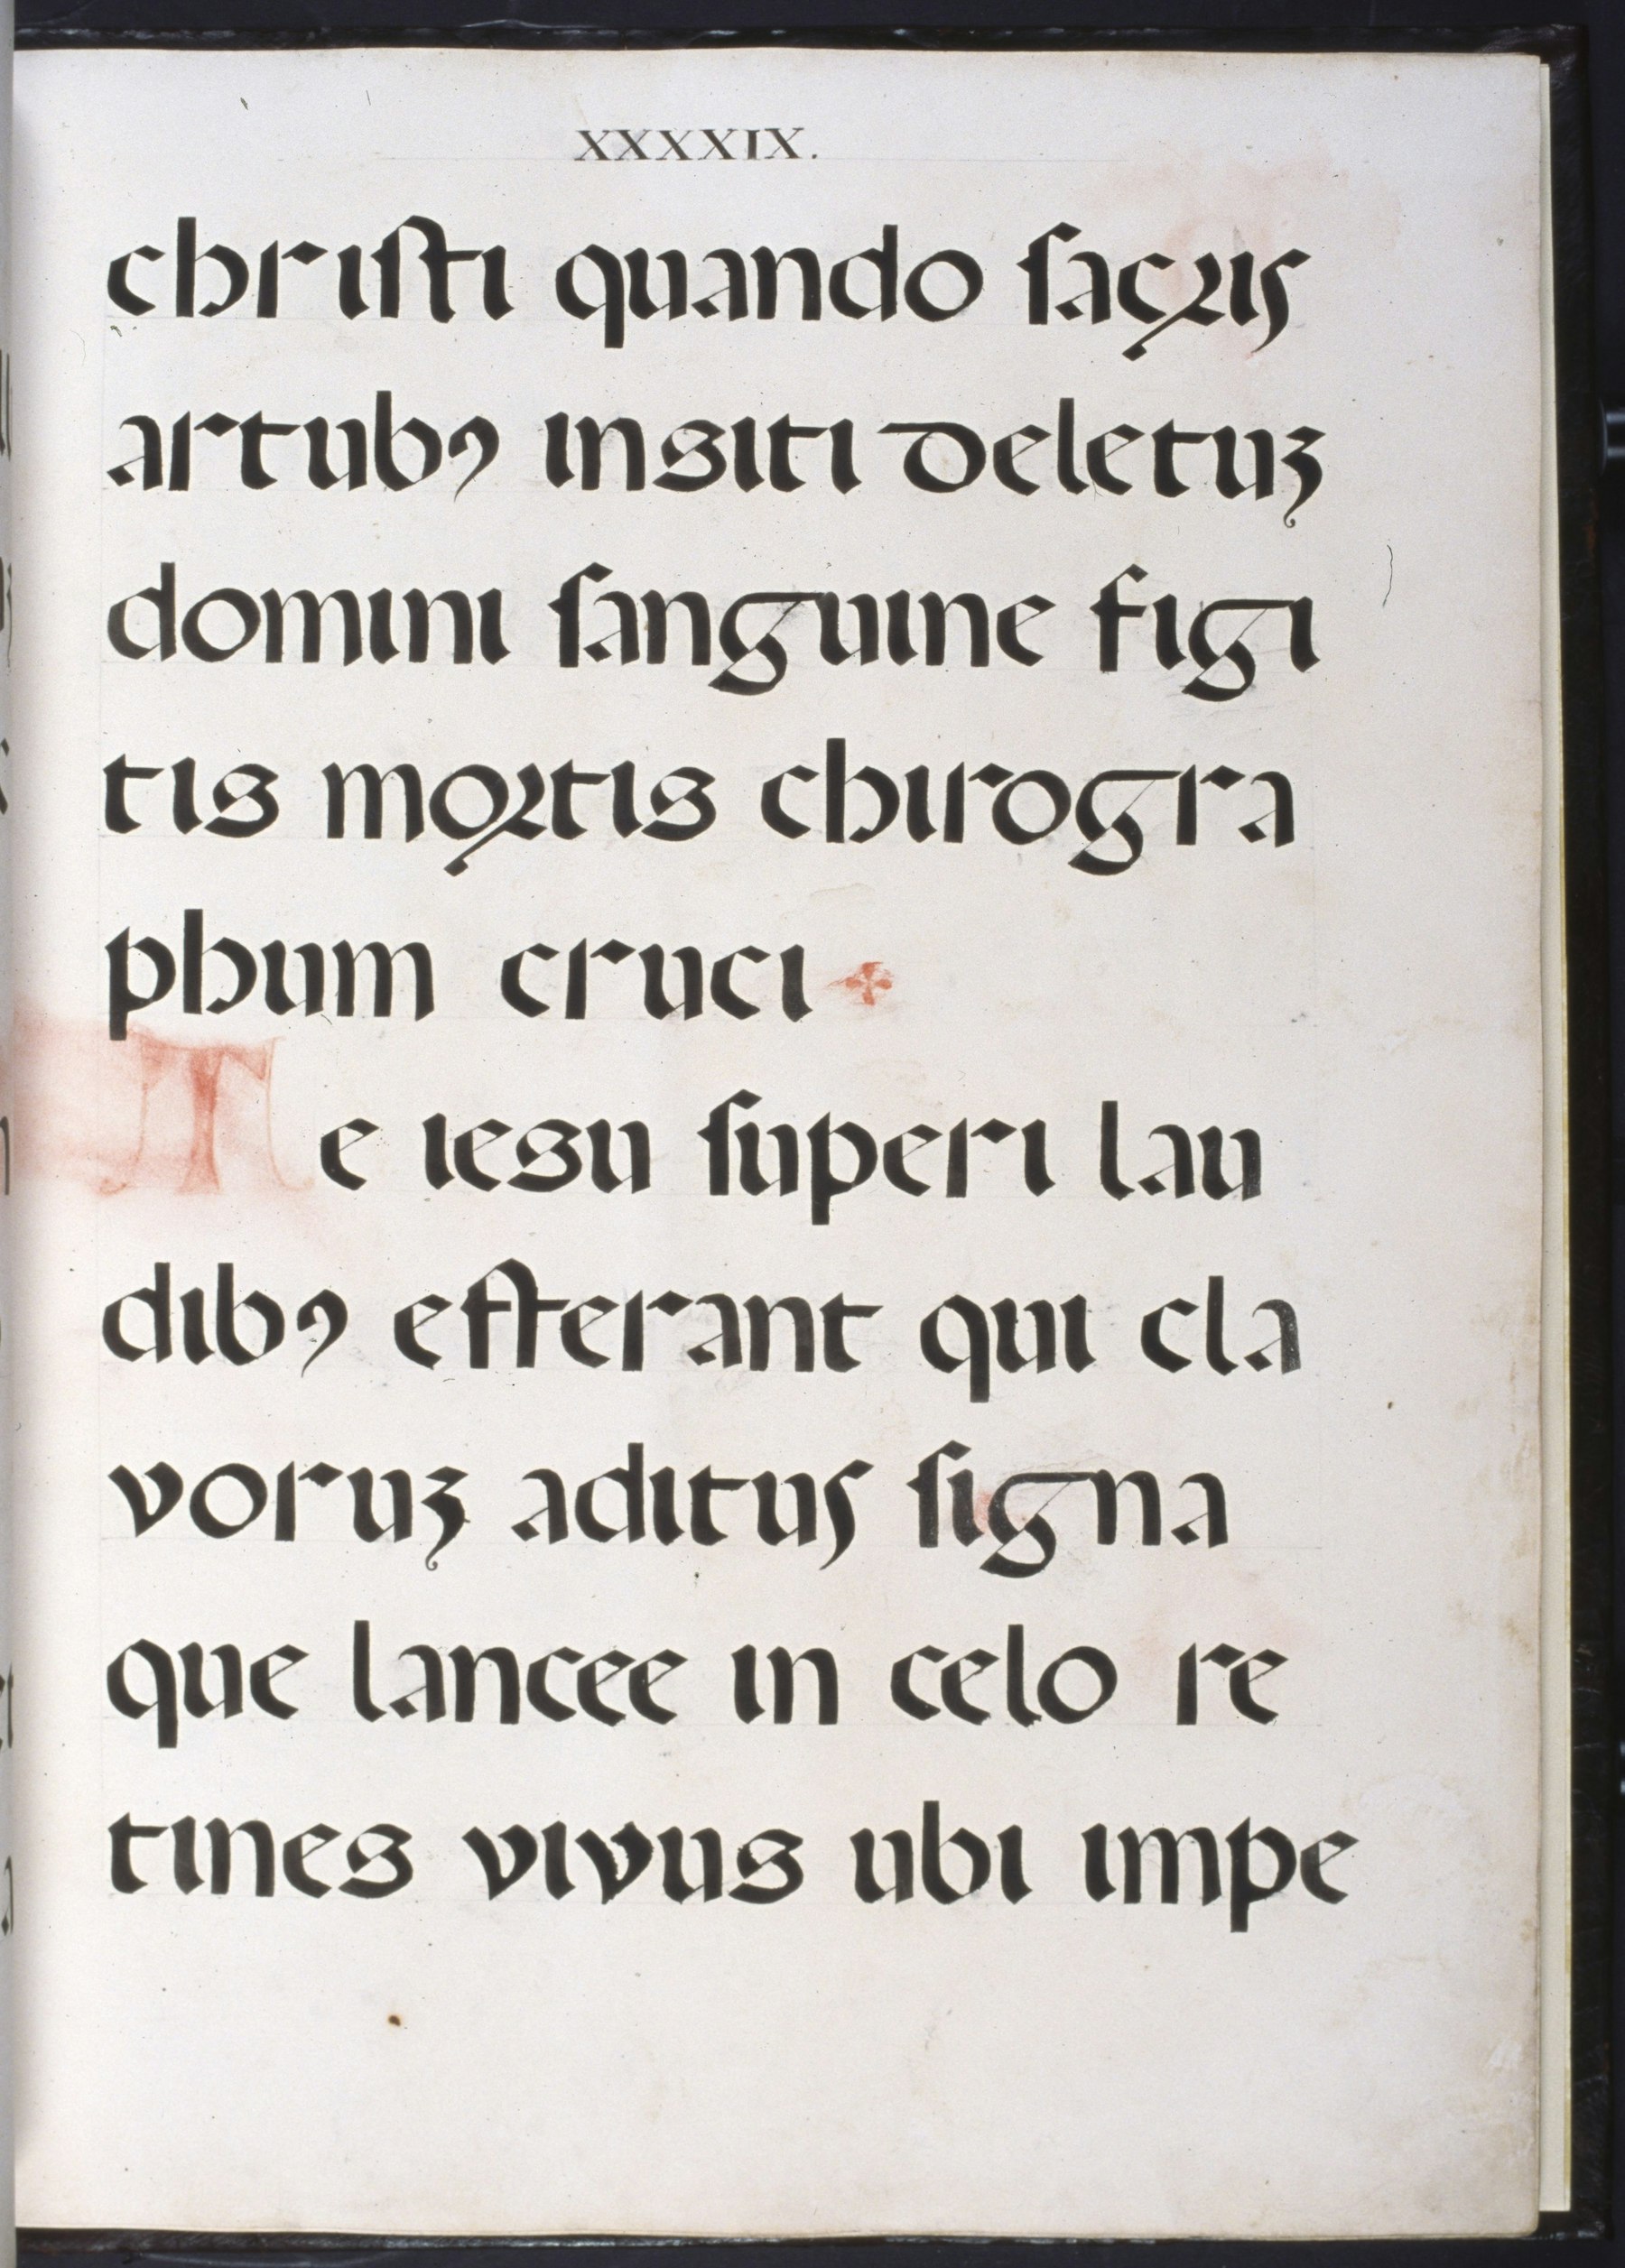 XXXXIX.
chriſti quando ſacꝛis
artubꝯ insiti deletuꝫ
domini ſanguine figi
tis moꝛtis chirogra
phum cruci ✣
Te iesu ſuperi lau
dibꝯ efferant qui cla
voruꝫ aditus ſigna
que lancee in celo re
tines vivus ubi impe